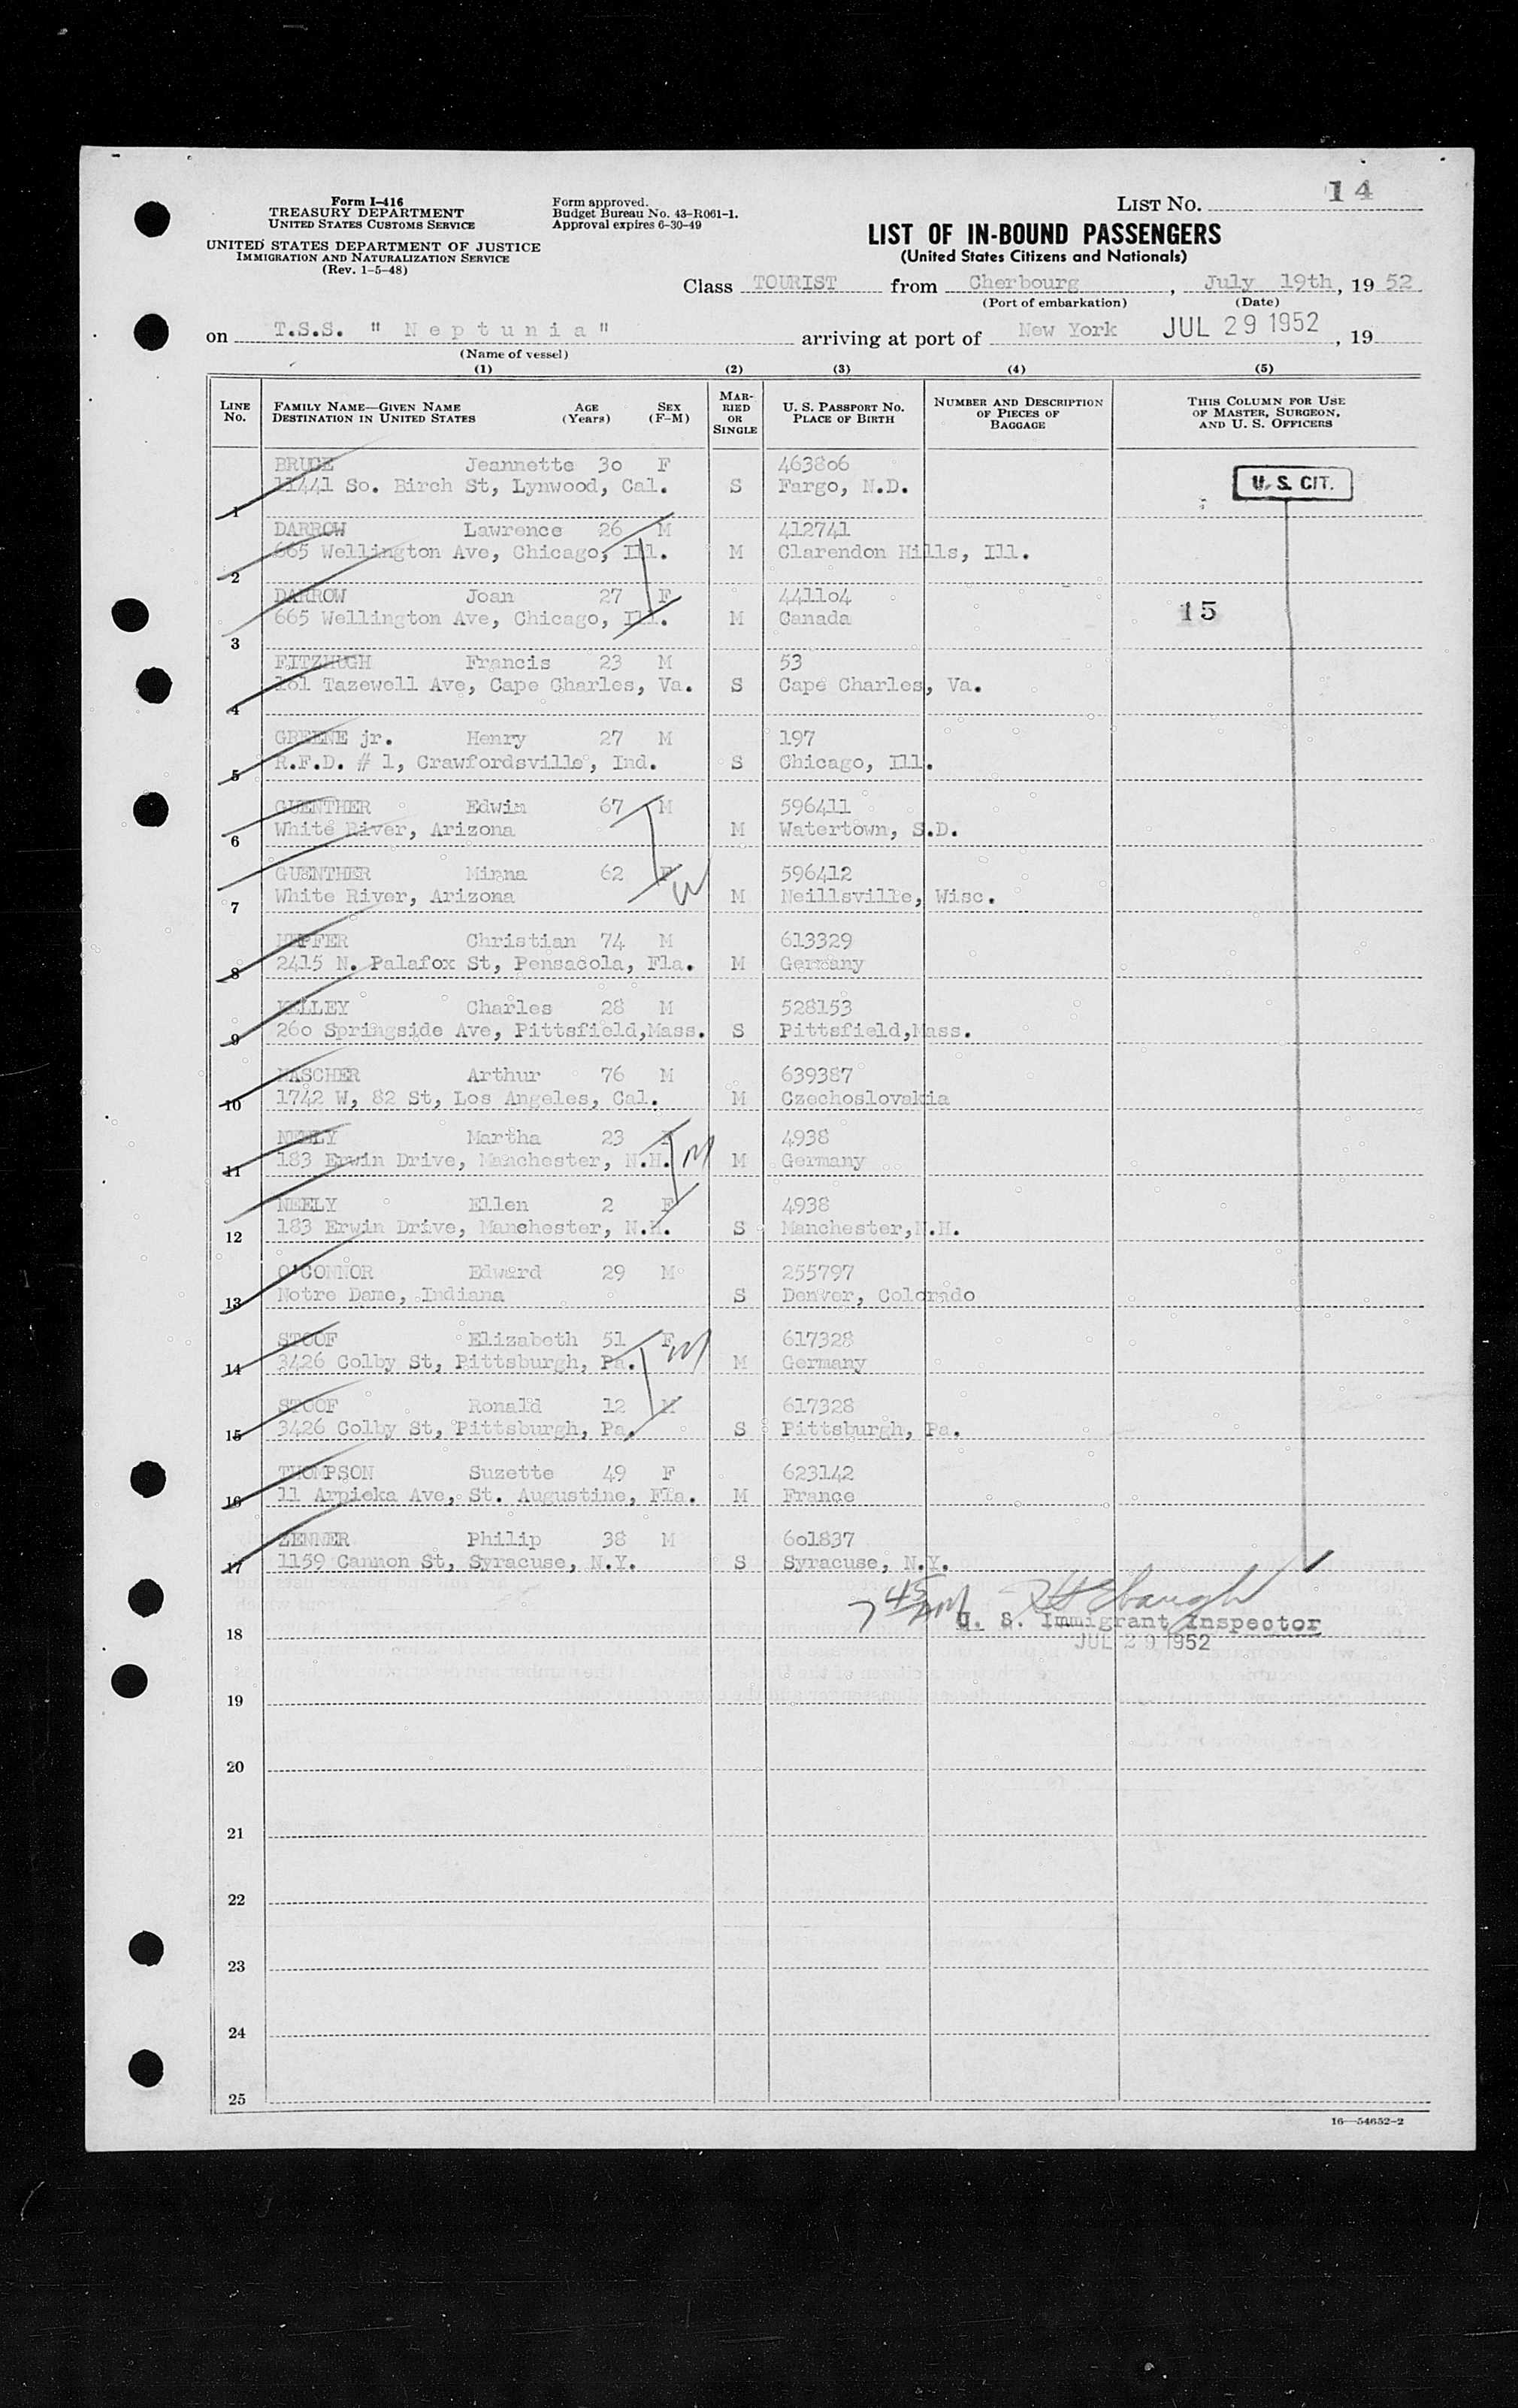 14
Form I-416
TREASURY DEPARTMENT
UNITED STATES CUSTOMS SERVICE
UNITED STATES DEPARTMENT OF JUSTICE
IMMIGRATION AND NATURALIZATION SERVICE
(Rev. 1-5-48)
Form approved.
Budget Bureau No. 43-R061-1.
Approval expires 6-30-49
LIST NO.
LIST OF IN-BOUND PASSENGERS
(United States Citizens and Nationals)
Class TOURIST from Cherbourg, July 19th, 19 52
(Port of embarkation) (Date)
on T.S.S. " N e p t u n i a " arriving at port of New York JUL 29 1952, 19
(Name of vessel)
(1) (2) (3) (4) (5)
LINE NO.
FAMILY NAME—GIVEN NAME AGE SEX
DESTINATION IN UNITED STATES (Years) (F-M)
MARRIED OR SINGLE
U. S. PASSPORT NO.
PLACE OF BIRTH
NUMBER AND DESCRIPTION
OF PIECES OF
BAGGAGE
THIS COLUMN FOR USE
OF MASTER, SURGEON,
AND U. S. OFFICERS
BRUCE Jeannette 30 F 463806
11441 So. Birch St, Lynwood, Cal. S Fargo, N.D. U. S. CIT.
1
DARROW Lawrence 26 M 412741
665 Wellington Ave, Chicago, Ill. M Clarendon Hills, Ill.
2
DARROW Joan 27 F 441104
665 Wellington Ave, Chicago, Ill. M Canada 15
3
FITZHUGH Francis 23 M 53
101 Tazewell Ave, Cape Charles, Va. S Cape Charles, Va.
4
GREENE jr. Henry 27 M 197
R.F.D. # 1, Crawfordsville, Ind. S Chicago, Ill.
5
GUENTHER Edwin 67 M 596411
White River, Arizona M Watertown, S.D.
6
GUENTHER Minna 62 F 596412
White River, Arizona M Neillsville, Wisc.
7
HUPFER Christian 74 M 613329
2415 N. Palafox St, Pensacola, Fla. M Germany
8
KELLEY Charles 28 M 528153
260 Springside Ave, Pittsfield,Mass. S Pittsfield,Mass.
9
MASCHER Arthur 76 M 639387
1742 W, 82 St, Los Angeles, Cal. M Czechoslovakia
10
NEELY Martha 23 F 4938
183 Erwin Drive, Manchester, N.H. M Germany
11
NEELY Ellen 2 F 4938
183 Erwin Drive, Manchester, N.H. S Manchester,N.H.
12
O'CONNOR Edward 29 M 255797
Notre Dame, Indiana S Denver, Colorado
13
STOOF Elizabeth 51 F 617328
3426 Colby St, Pittsburgh, Pa. M Germany
14
STOOF Ronald 12 M 617328
3426 Colby St, Pittsburgh, Pa. S Pittsburgh, Pa.
15
THOMPSON Suzette 49 F 623142
11 Arpieka Ave, St. Augustine, Fla. M France
16
ZENNER Philip 38 M 601837
1159 Cannon St, Syracuse, N.Y. S Syracuse, N.Y.
17
7 45 AM
U. S. Immigrant Inspector
JUL 29 1952
18
19
20
21
22
23
24
25
16—54652-2